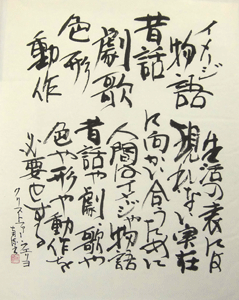 イメージ
物語
昔話
劇歌
色形
動作
生活の表には
現れない実在
に向かい合うために
人間はイメージや物語
昔話や劇歌や
色や形や動作を
必要とする
クリストファー・フェリヨ